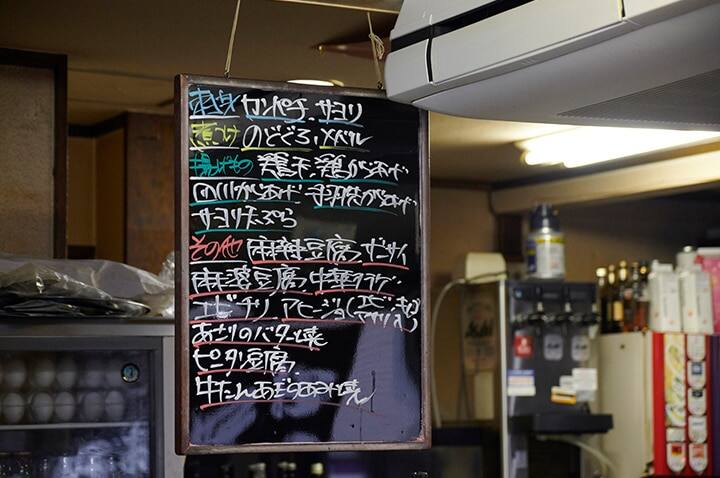 刺身 カンパチ、サヨリ
煮つけ のどぐろ、メバル
揚げもの 鶏天、鶏からあげ
四川からあげ 手羽先からあげ
サヨリ天ぷら
その他 麻辣豆腐、ザーサイ
麻婆豆腐、中華クラゲ
エビチリ、アヒージョ(エビ・キノコ
アサリ入)
あさりのバター焼
ピータン豆腐、
牛たんあぶり焼
Asahi